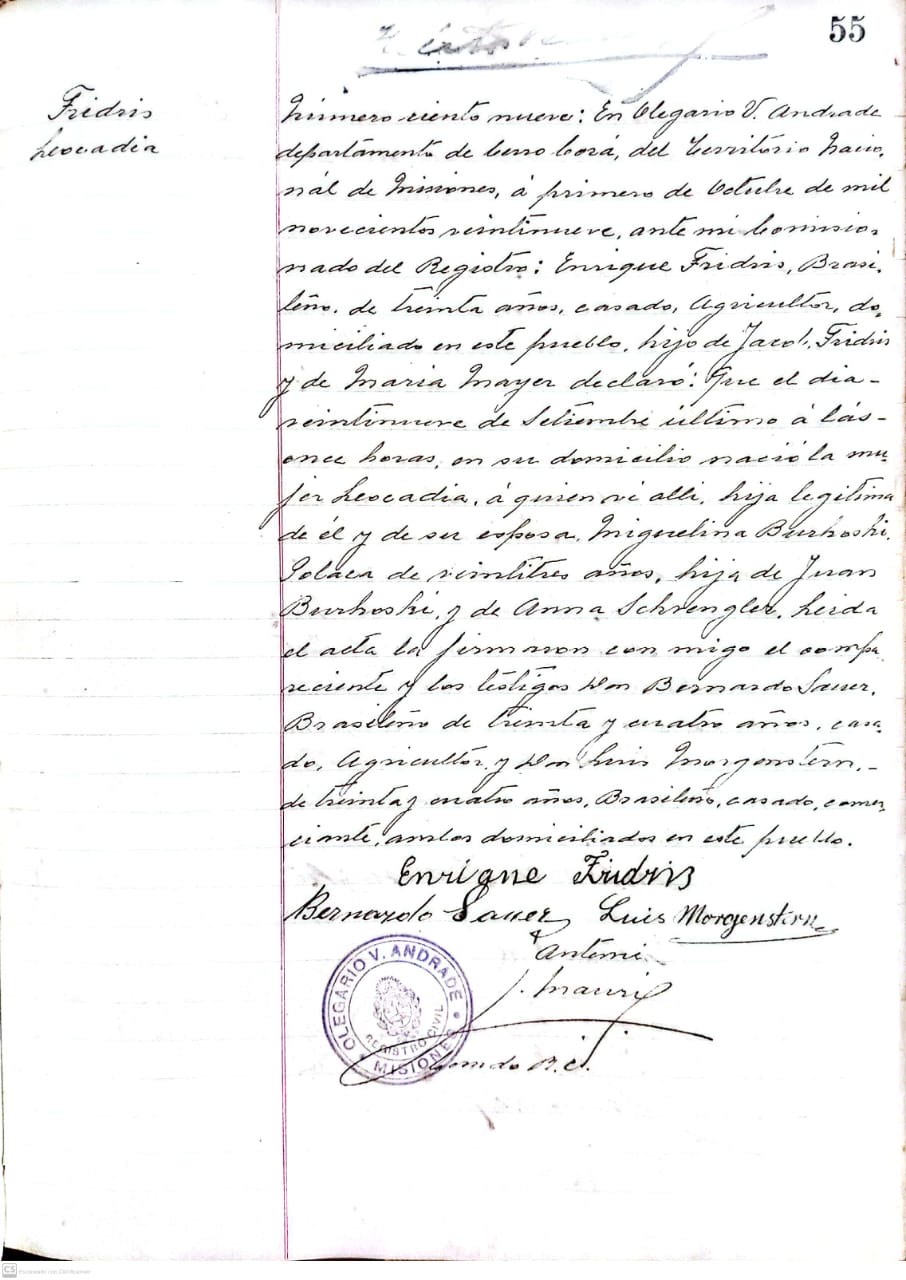 55
Fridris
Leocadia
Número ciento nueve: En Olegario V. Andrade
departamento de Cerro Corá, del Território Nacio-
nál de Misiones, á primero de Octubre de mil
novecientos veintinueve, ante mi Comisio-
nado del Registro: Enrique Fridris, Brasi-
leño, de treinta años, casado, Agricultor, do-
miciliado en este pueblo, hijo de Jacob Fridris
y de Maria Mayer declaró: Que el dia-
veintinueve de Setiembre último á lás-
once horas, en su domicilio nació la mu-
jer Leocadia, á quien vi alli, hija legitima
de él y de su esposa, Miguelina Burkoski,
Polaca de veintitres años, hija de Juan
Burkoski, y de Anna Schrengler. Leida
el acta la firmaron con migo el compa-
reciente y los téstigos Don Bernardo Sauer,
Brasileño de treinta y cuatro años, casa-
do, Agricultór, y Don Luis Morgenstern,-
de treinta y cuatro años, Brasileño, casado, comer-
ciante, ambos domiciliados en este pueblo.
Enrique Fridris
Bernardo Sauer Luis Morgenstern
Antemi
J. Mauri
OLEGARIO V. ANDRADE
REGISTRO CIVIL
MISIONES
R. C.
CS Escaneado con CamScanner